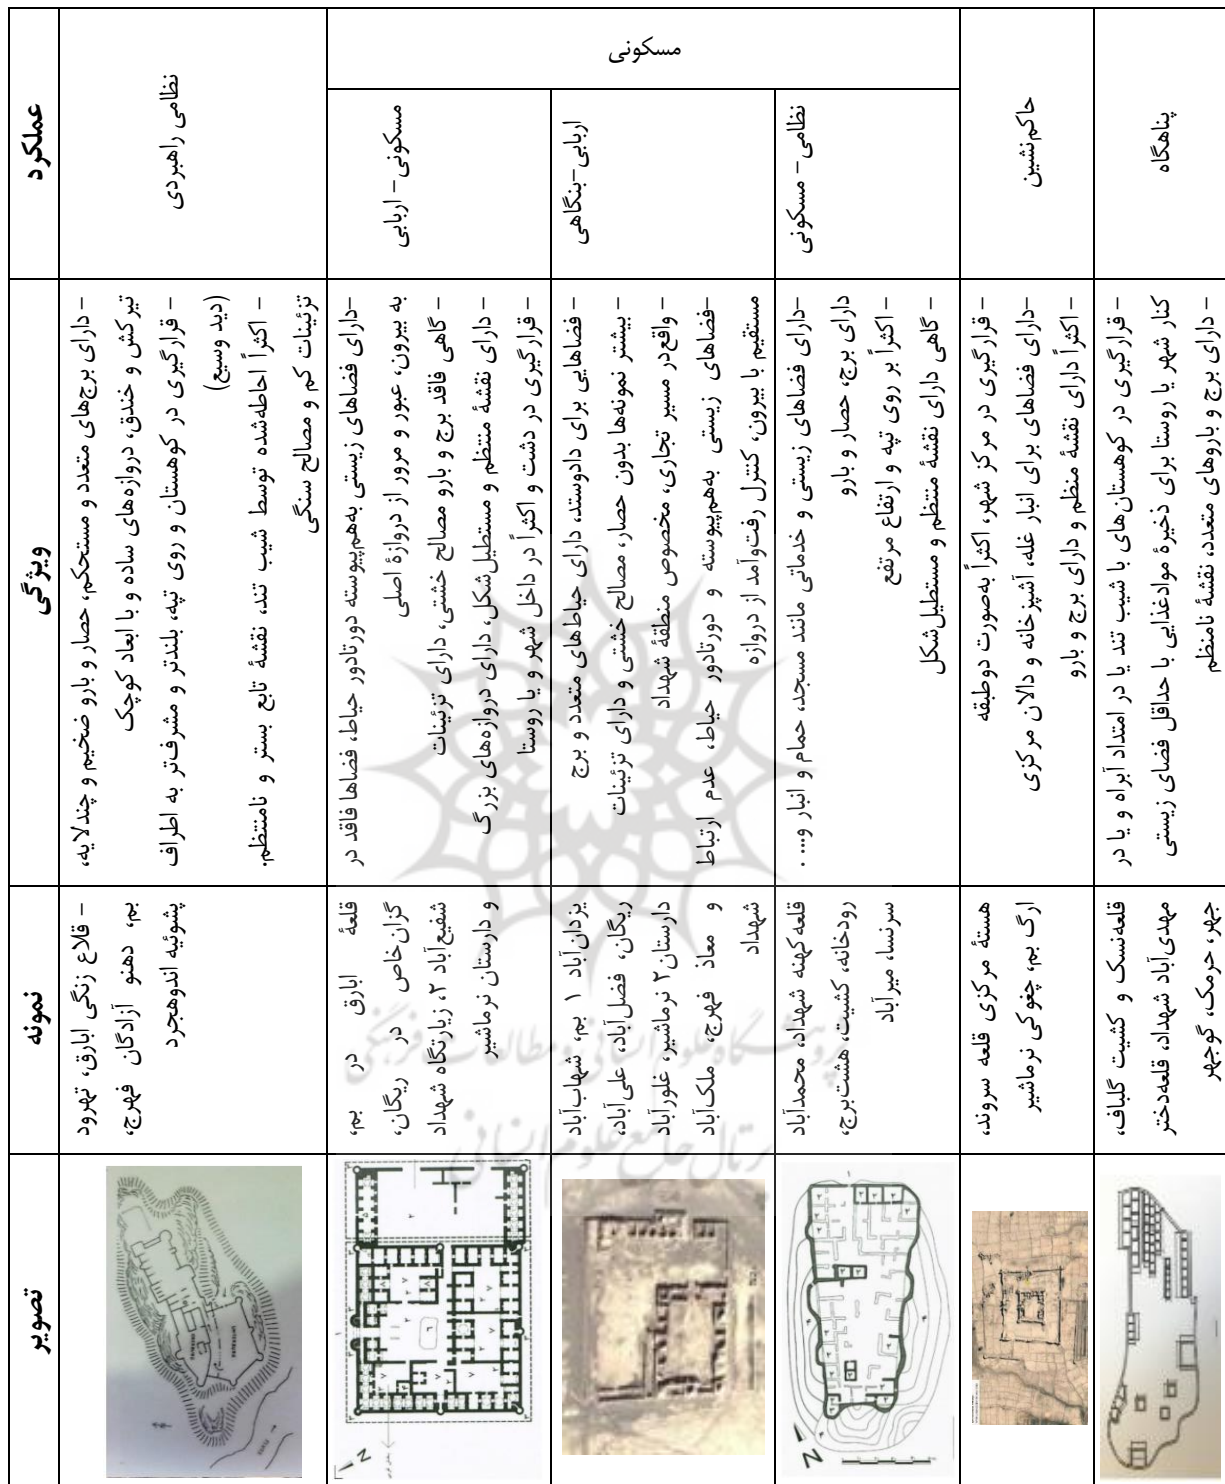 عملکرد
ویژگی
نمونه
تصویر
نظامی راهبردی
- دارای برج‌های متعدد و مستحکم، حصار و بارو ضخیم و چندلایه،
تیرکش و خندق، دروازه‌های ساده و با ابعاد کوچک
- قرارگیری در کوهستان و روی تپه، بلندتر و مشرف‌تر به اطراف
(دید وسیع)
- اکثراً احاطه‌شده توسط شیب تند، نقشهٔ تابع بستر و نامنتظم.
تزئینات کم و مصالح سنگی
- قلاع زنگی ابارق، تهرود
بم، دهنو آزادگان فهرج،
پشوئیه اندوهجرد
مسکونی
مسکونی - اربابی
-دارای فضاهای زیستی به‌هم‌پیوسته دورتادور حیاط، فضاها فاقد در
به بیرون، عبور و مرور از دروازهٔ اصلی
- گاهی فاقد برج و بارو مصالح خشتی، دارای تزئینات
- دارای نقشهٔ منتظم و مستطیل‌شکل، دارای دروازه‌های بزرگ
- قرارگیری در دشت و اکثراً در داخل شهر و یا روستا
قلعهٔ ابارق در بم،
گزان‌خاص در ریگان،
شفیع‌آباد ۲، زیارتگاه شهداد
و دارستان نرماشیر
N
اربابی-بنگاهی
- فضاهایی برای دادوستد، دارای حیاط‌های متعدد و برج
- بیشتر نمونه‌ها بدون حصار، مصالح خشتی و دارای تزئینات
- واقع‌در مسیر تجاری، مخصوص منطقهٔ شهداد
-فضاهای زیستی به‌هم‌پیوسته و دورتادور حیاط، عدم ارتباط
مستقیم با بیرون، کنترل رفت‌وآمد از دروازه
یزدان‌آباد ۱ بم، شهاب‌آباد
ریگان، فضل‌آباد، علی‌آباد،
دارستان۲ نرماشیر، غلورآباد
و معاذ فهرج، ملک‌آباد
شهداد
نظامی - مسکونی
-دارای فضاهای زیستی و خدماتی مانند مسجد، حمام و انبار و... .
دارای برج، حصار و بارو
- اکثراً بر روی تپه و ارتفاع مرتفع
- گاهی دارای نقشهٔ منتظم و مستطیل‌شکل
قلعه کهنه شهداد، محمدآباد
رودخانه، کشیت، هشت‌برج،
سرنسا، میرآباد
N
حاکم‌نشین
- قرارگیری در مرکز شهر، اکثراً به‌صورت دوطبقه
-دارای فضاهای برای انبار غله، آشپزخانه و دالان مرکزی
- اکثراً دارای نقشهٔ منظم و دارای برج و بارو
هستهٔ مرکزی قلعه سروند،
ارگ بم، چغوکی نرماشیر
پناهگاه
- قرارگیری در کوهستان‌های با شیب تند یا در امتداد آبراه و یا در
کنار شهر یا روستا برای ذخیرهٔ موادغذایی با حداقل فضای زیستی
- دارای برج و باروهای متعدد، نقشهٔ نامنظم
قلعه‌نسک و کشیت گلباف،
مهدی‌آباد شهداد، قلعه‌دختر
جهر، حرمک، گوجهر
پژوهشگاه علوم انسانی و مطالعات فرهنگی
پرتال جامع علوم انسانی